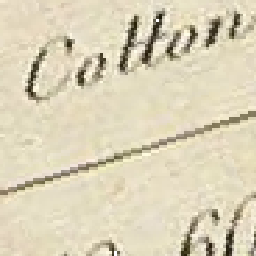 Cotton
60